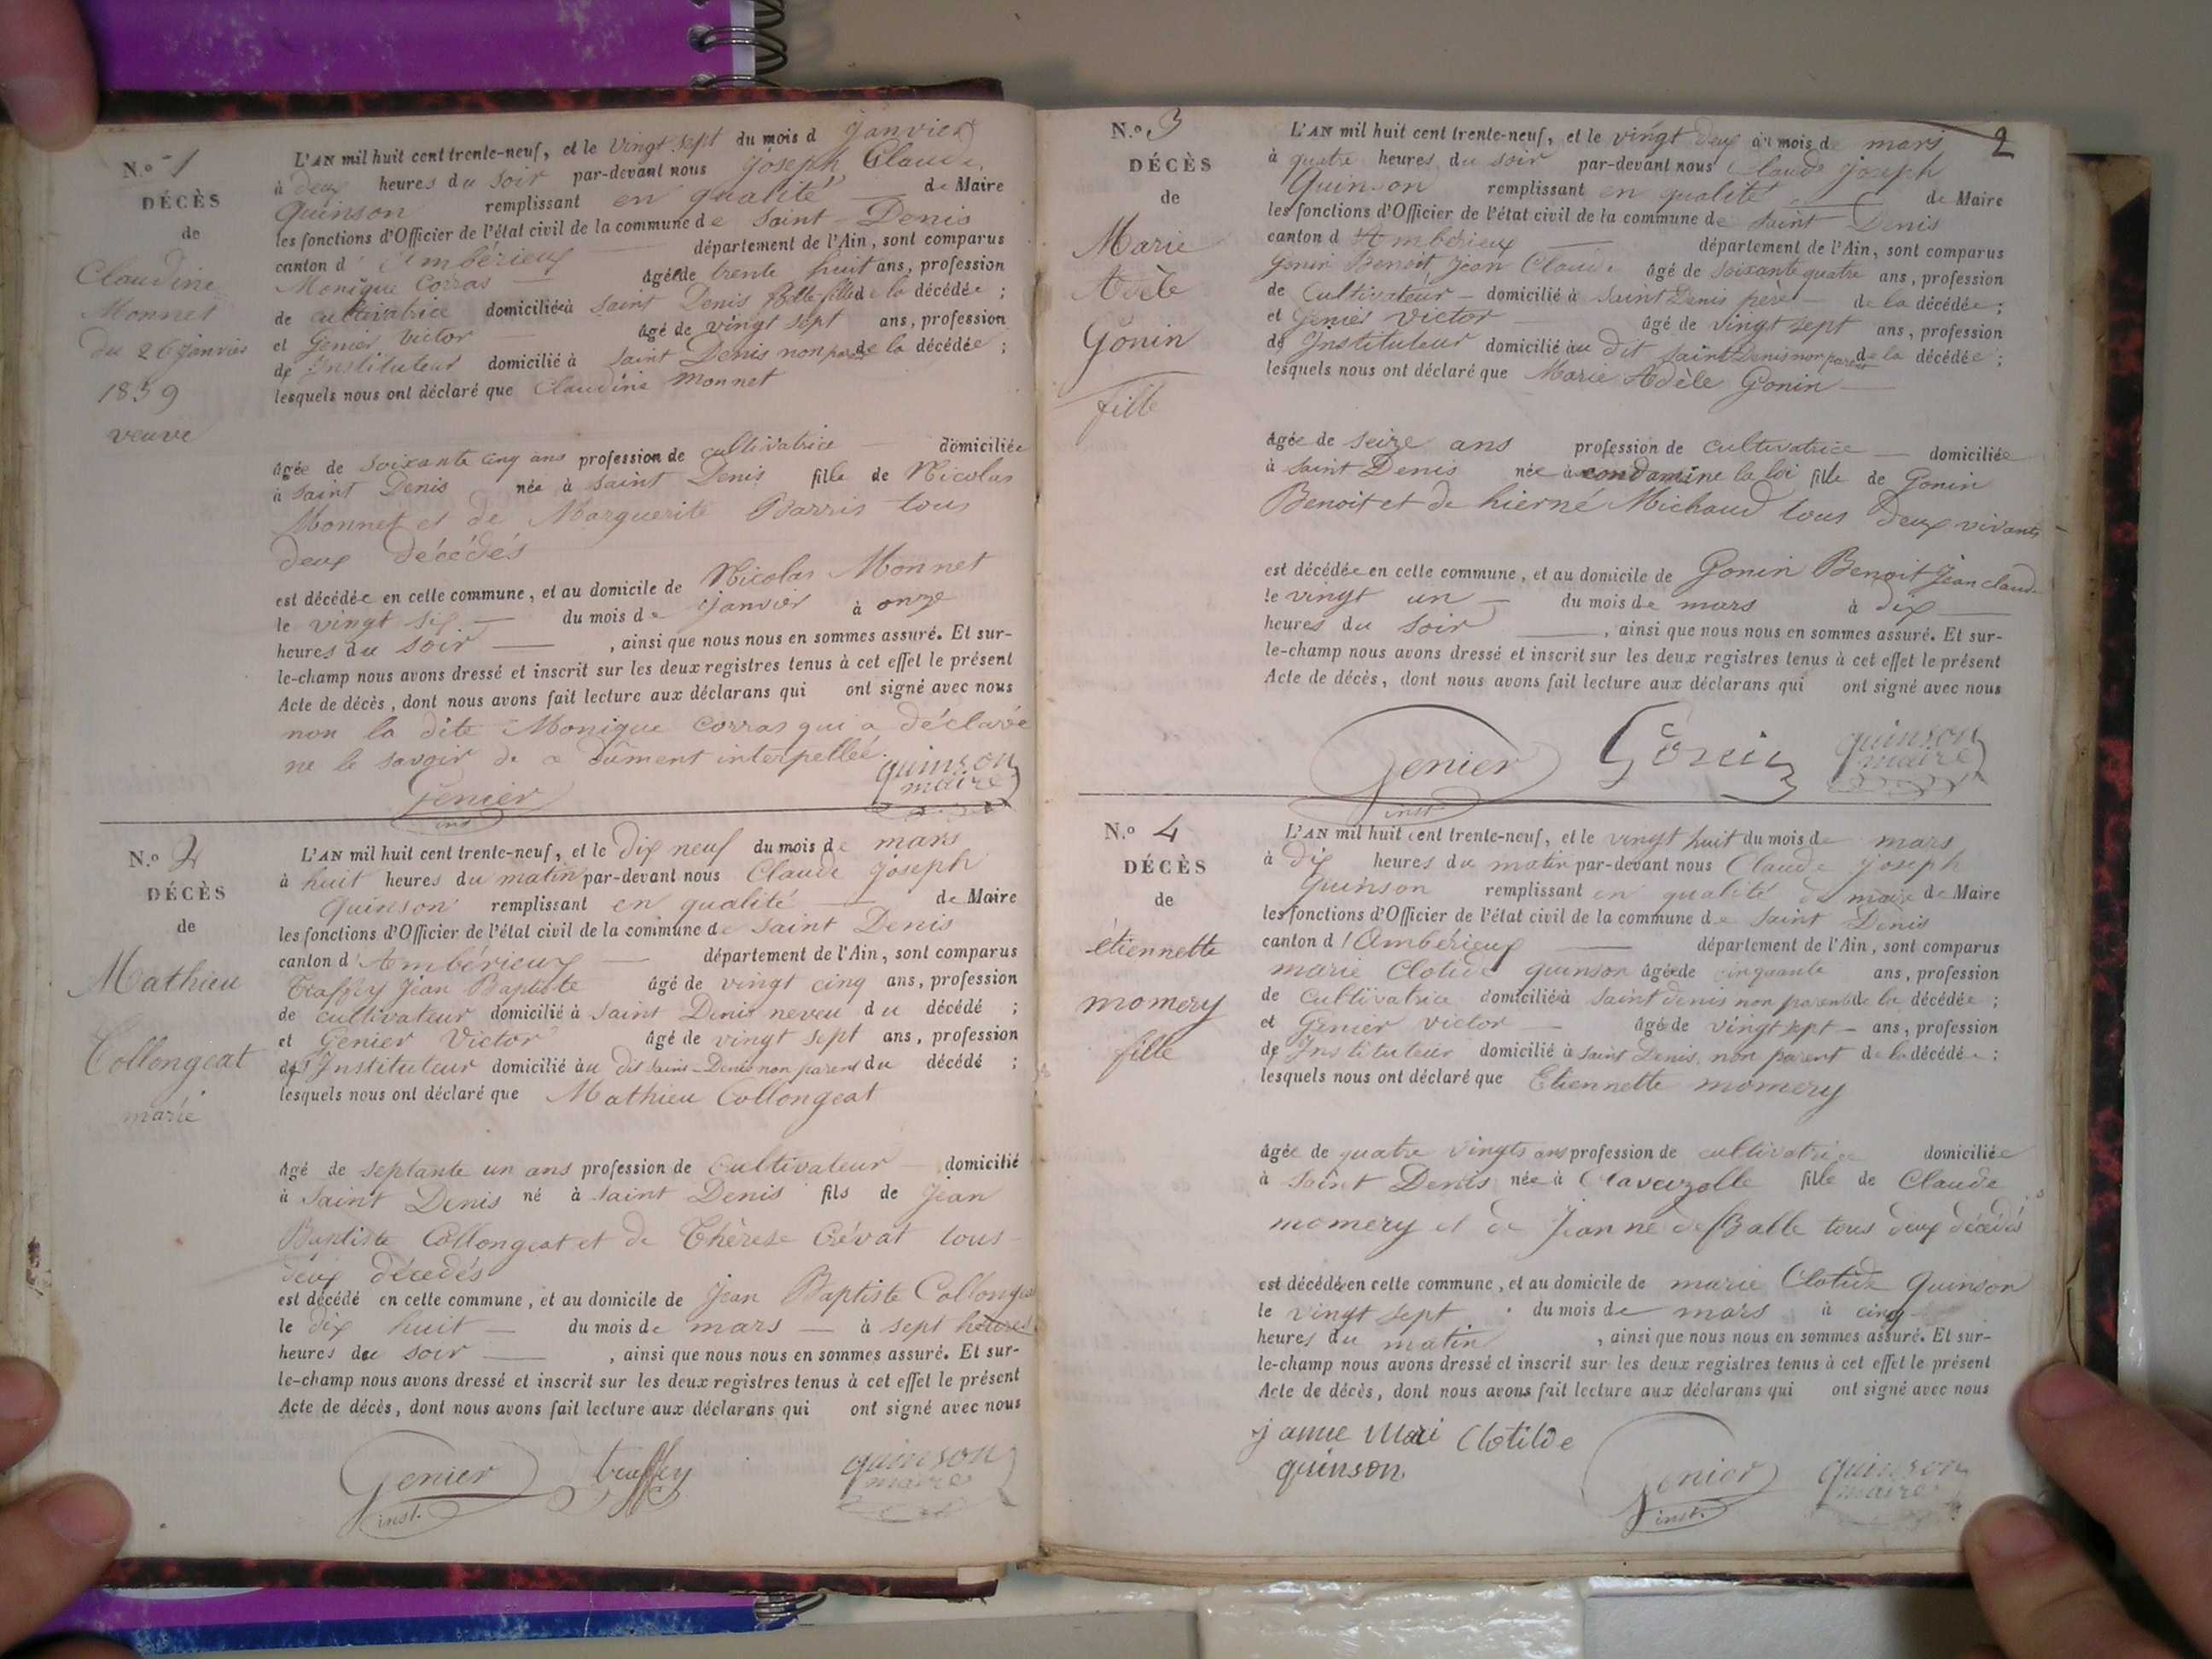 N.º 1
DÉCÈS
de
Claudine
Monnet
du 26 janvier
1839
veuve
L'AN mil huit cent trente-neuf, et le vingt sept du mois d janvier
à deux heures du soir par-devant nous joseph Claude
Quinson remplissant en qualité de Maire
les fonctions d'Officier de l'état civil de la commune de Saint-Denis
canton d'Ambérieux département de l'Ain, sont comparus
Monique Corras âgée de trente huit ans, profession
de cultivatrice domiciliée à Saint Denis Belle fille de la décédée ;
et Genier Victor âgé de vingt sept ans, profession
de Instituteur domicilié à Saint Denis non parent de la décédée ;
lesquels nous ont déclaré que Claudine Monnet
âgée de soixante cinq ans profession de cultivatrice domiciliée
à Saint Denis née à Saint Denis fille de Nicolas
Monnet et de Marguerite Barris tous
deux décédés
est décédée en cette commune, et au domicile de Nicolas Monnet
le vingt six du mois de janvier à onze
heures du soir , ainsi que nous nous en sommes assuré. Et sur-
le-champ nous avons dressé et inscrit sur les deux registres tenus à cet effet le présent
Acte de décès, dont nous avons fait lecture aux déclarans qui ont signé avec nous
non la dite Monique Corras qui a déclarée
ne le savoir de ce dûment interpellée.
Genier
inst
quinson
maire
N.º 2
DÉCÈS
de
Mathieu
Collongeat
marié
L'AN mil huit cent trente-neuf, et le dix neuf du mois de mars
à huit heures du matin par-devant nous Claude joseph
Quinson remplissant en qualité de Maire
les fonctions d'Officier de l'état civil de la commune de Saint Denis
canton d'Ambérieux département de l'Ain, sont comparus
Traffey Jean Baptiste âgé de vingt cinq ans, profession
de cultivateur domicilié à Saint Denis neveu du décédé ;
et Genier Victor âgé de vingt sept ans, profession
de Instituteur domicilié au dit Saint-Denis non parent du décédé ;
lesquels nous ont déclaré que Mathieu Collongeat
âgé de septante un ans profession de cultivateur domicilié
à Saint Denis né à Saint Denis fils de Jean
Baptiste Collongeat et de Thérèse Crévat tous
deux décedés
est décédé en cette commune, et au domicile de Jean Baptiste Collongeat
le dix huit du mois de mars à sept heures
heures du soir , ainsi que nous nous en sommes assuré. Et sur-
le-champ nous avons dressé et inscrit sur les deux registres tenus à cet effet le présent
Acte de décès, dont nous avons fait lecture aux déclarans qui ont signé avec nous
Genier
inst.
traffey
quinson
maire
2
N.º 3
DÉCÈS
de
Marie
Adèle
Gonin
fille
L'AN mil huit cent trente-neuf, et le vingt deux du mois de mars
à quatre heures du soir par-devant nous Claude joseph
Quinson remplissant en qualité de Maire
les fonctions d'Officier de l'état civil de la commune de Saint Denis
canton d'Ambérieux département de l'Ain, sont comparus
Gonin Benoit Jean Claude âgé de soixante quatre ans, profession
de Cultivateur domicilié à Saint Denis père de la décédée ;
et Genier Victor âgé de vingt sept ans, profession
de Instituteur domicilié au dit Saint Denis non parent de la décédée ;
lesquels nous ont déclaré que Marie Adèle Gonin
âgée de seize ans profession de cultivatrice domiciliée
à Saint Denis née à condamine la loi fille de Gonin
Benoit et de hierné Michaud tous deux vivants
est décédée en cette commune, et au domicile de Gonin Benoit Jean claude
le vingt un du mois de mars à dix
heures du soir , ainsi que nous nous en sommes assuré. Et sur-
le-champ nous avons dressé et inscrit sur les deux registres tenus à cet effet le présent
Acte de décès, dont nous avons fait lecture aux déclarans qui ont signé avec nous
Genier
inst.
Gonin
quinson
maire
N.º 4
DÉCÈS
de
étiennette
momery
fille
L'AN mil huit cent trente-neuf, et le vingt huit du mois de mars
à dix heures du matin par-devant nous Claude joseph
Quinson remplissant en qualité de maire de Maire
les fonctions d'Officier de l'état civil de la commune de Saint Denis
canton d'Ambérieux département de l'Ain, sont comparus
marie Clotide quinson âgée de cinquante ans, profession
de Cultivatrice domiciliée à Saint denis non parent de la décédée ;
et Genier victor âgé de vingt sept ans, profession
de Instituteur domicilié à Saint Denis, non parent de la décédée ;
lesquels nous ont déclaré que Etiennette momery
âgée de quatre vingts ans profession de cultivatrice domiciliée
à Saint Denis née à Claveyzolle fille de Claude
momery et de Jeanne de Balle tous deux décedés
est décédée en cette commune, et au domicile de marie Clotide Quinson
le vingt sept du mois de mars à cinq
heures du matin , ainsi que nous nous en sommes assuré. Et sur-
le-champ nous avons dressé et inscrit sur les deux registres tenus à cet effet le présent
Acte de décès, dont nous avons fait lecture aux déclarans qui ont signé avec nous
janne Mari Clotilde
quinson
Genier
inst.
quinson
maire